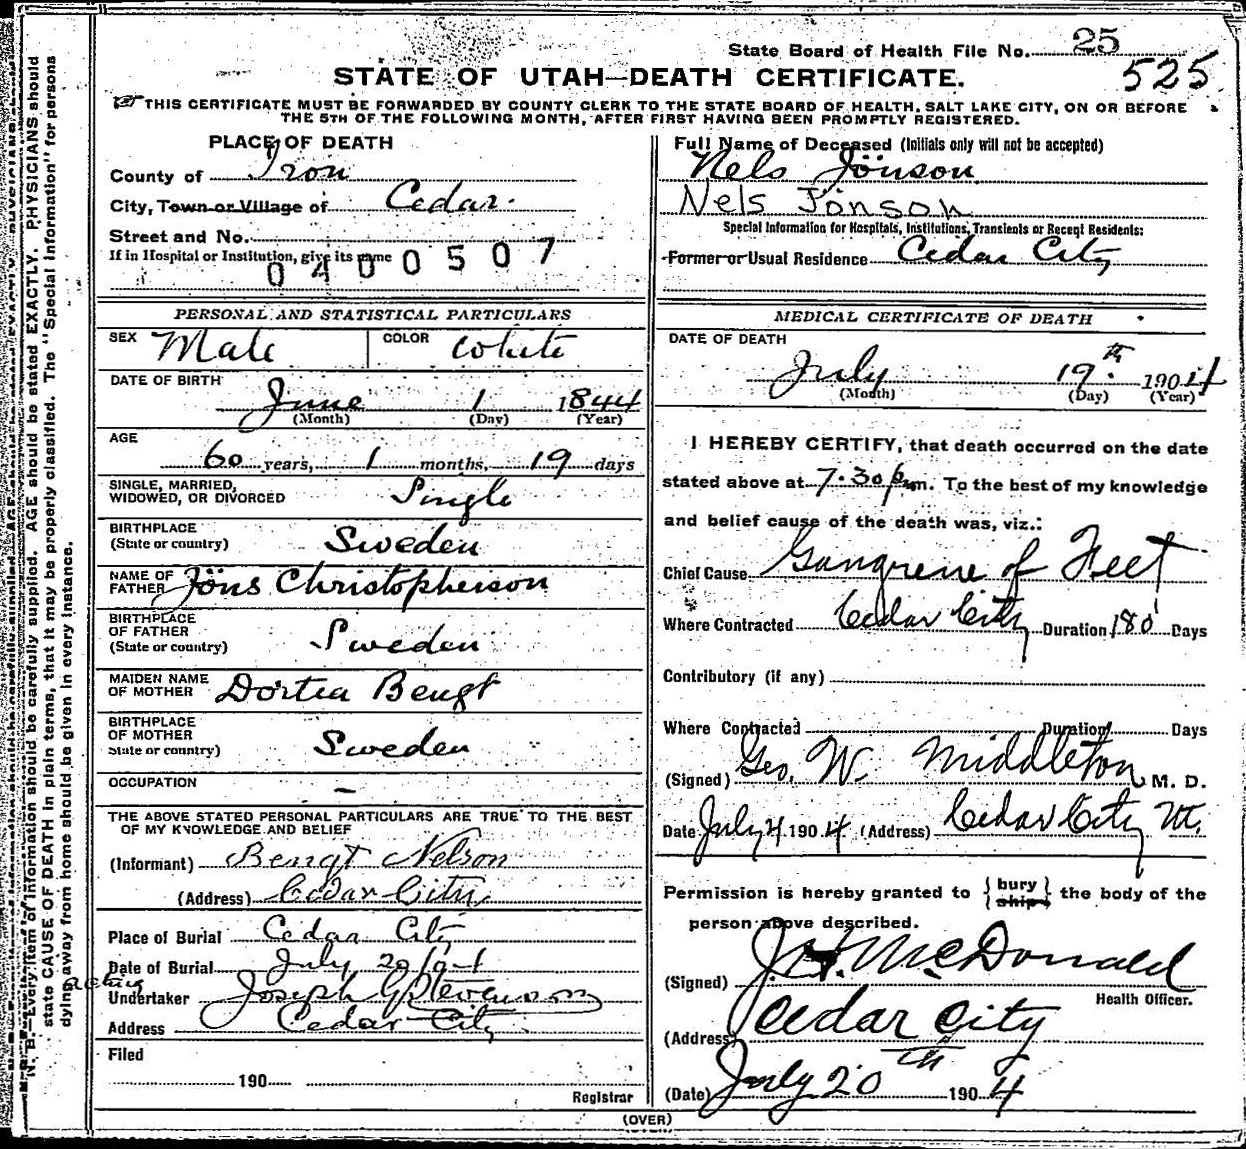 State Board of Health File No. 25
525
STATE OF UTAH—DEATH CERTIFICATE.
THIS CERTIFICATE MUST BE FORWARDED BY COUNTY CLERK TO THE STATE BOARD OF HEALTH, SALT LAKE CITY, ON OR BEFORE
THE 5TH OF THE FOLLOWING MONTH, AFTER FIRST HAVING BEEN PROMPTLY REGISTERED.
PLACE OF DEATH
County of Iron
City, Town or Village of Cedar.
Street and No.
If in Hospital or Institution, give its name
0400507
Full Name of Deceased (Initials only will not be accepted)
Nels Jönson
Nels Jonson
Special Information for Hospitals, Institutions, Transients or Recent Residents:
Former or Usual Residence Cedar City
PERSONAL AND STATISTICAL PARTICULARS
SEX Male COLOR White
DATE OF BIRTH
June 1 1844
(Month) (Day) (Year)
AGE
60 years, 1 months, 19 days
SINGLE, MARRIED,
WIDOWED, OR DIVORCED Single
BIRTHPLACE
(State or country) Sweden
NAME OF
FATHER Jöns Christopherson
BIRTHPLACE
OF FATHER
(State or country) Sweden
MAIDEN NAME
OF MOTHER Dortea Bengt
BIRTHPLACE
OF MOTHER
State or country) Sweden
OCCUPATION —
THE ABOVE STATED PERSONAL PARTICULARS ARE TRUE TO THE BEST
OF MY KNOWLEDGE AND BELIEF
(Informant) Bengt Nelson
(Address) Cedar City
Place of Burial Cedar City
Date of Burial July 20 1904
acting
Undertaker Joseph G Stevenson
Address Cedar City
Filed
190
Registrar
MEDICAL CERTIFICATE OF DEATH
DATE OF DEATH
July 19th 1904
(Month) (Day) (Year)
I HEREBY CERTIFY, that death occurred on the date
stated above at 7.30 p m. To the best of my knowledge
and belief cause of the death was, viz.:
Chief Cause Gangrene of Feet
Where Contracted Cedar City Duration 180 Days
Contributory (if any)
Where Contracted Duration Days
(Signed) Geo. W. Middleton, M. D.
Date July 4 1904 (Address) Cedar City Ut.
Permission is hereby granted to { bury ship } the body of the
person above described.
(Signed) J. H. McDonald
Health Officer.
(Address) Cedar City
(Date) July 20th 1904
(OVER)
N. B.—Every item of information should be carefully supplied. AGE should be stated EXACTLY. PHYSICIANS should
state CAUSE OF DEATH in plain terms, that it may be properly classified. The "Special Information" for persons
dying away from home should be given in every instance.